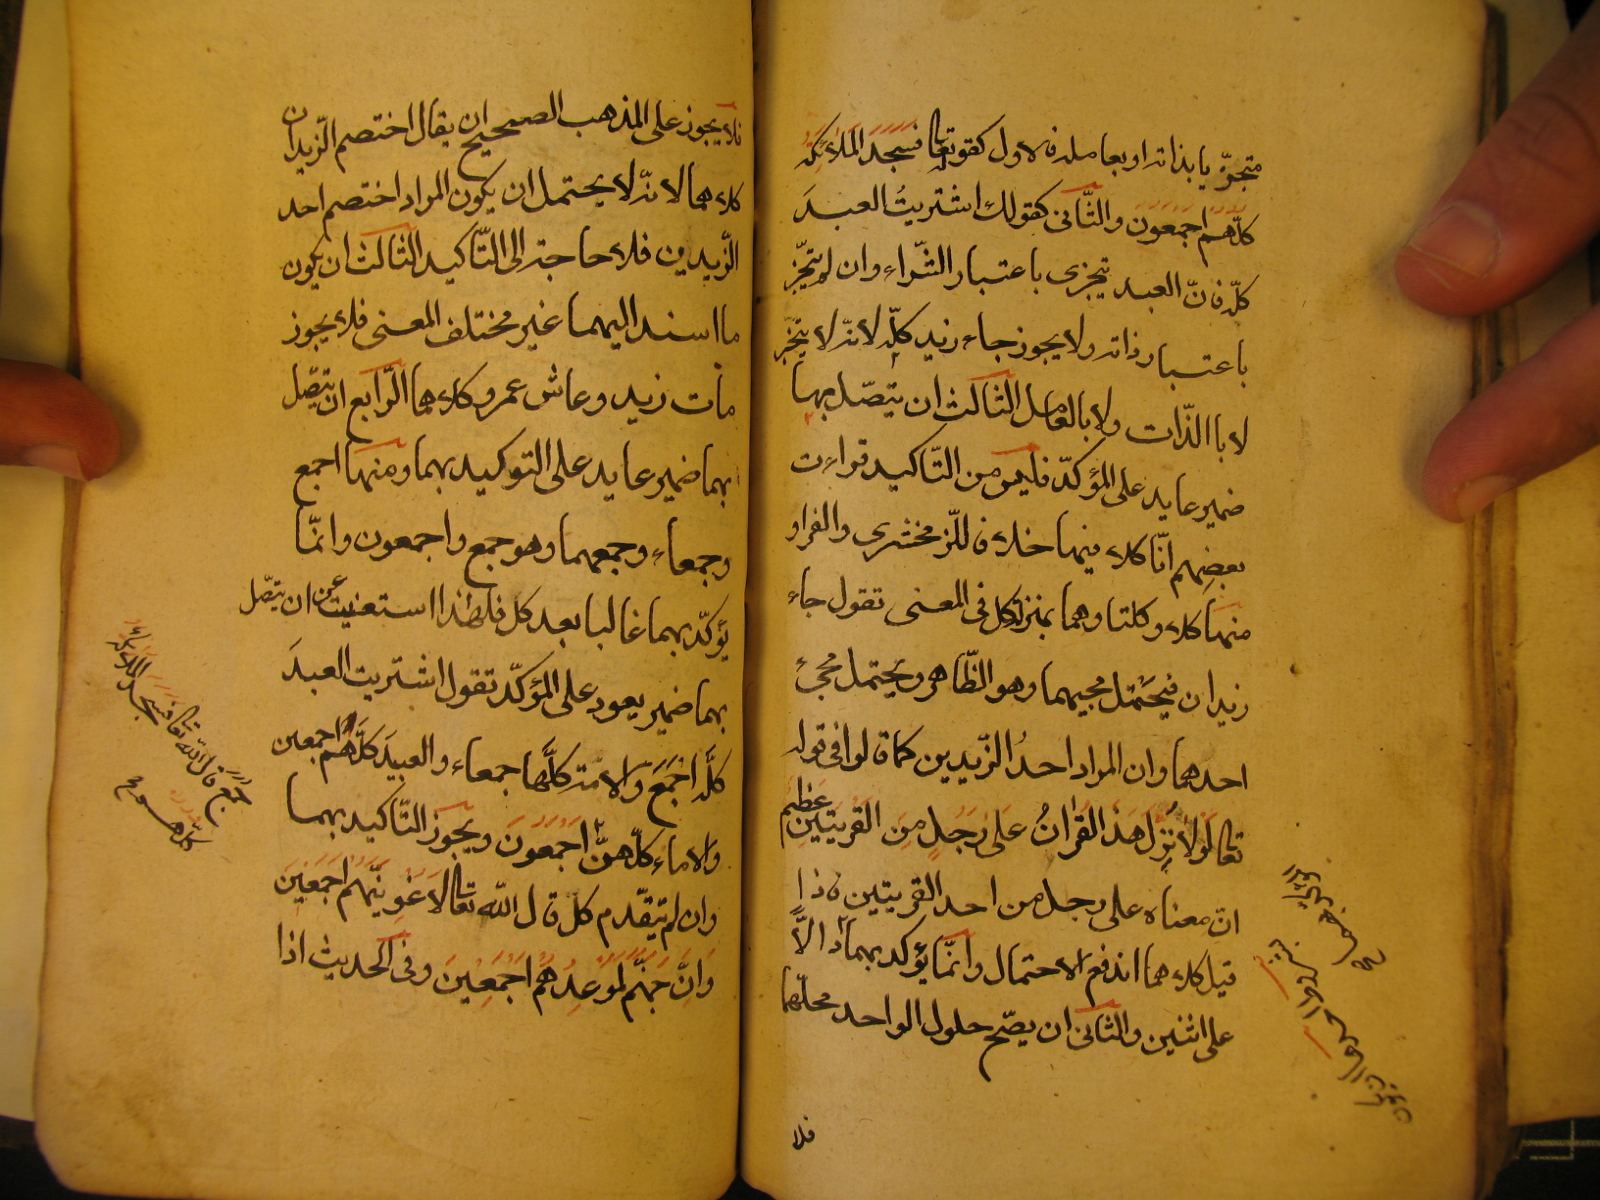 متجزّيا بذاته او بعامله فالاول كقوله تعالى فسجد الملائكة
كلّهم اجمعون والثّانى كقولك اشتريتُ العبدَ
كلّه فانّ العبد يتجزى باعتبار الشّراء وان لم يتجزّ
باعتبار ذاته ولا يجوز جاء زيد كلّه لانه لا يتجزّ
لا باالذّات ولا بالعامل الثالث ان يتّصل بهما
ضمير عايد على المؤكدّ فليس من التّاكيد قراءت
بعضهم انّا كلا فيها خلافا للزّمخشرى والفراو
منها كلا وكلتا وهما بمنزلة كل فى المعنى تقول جاء
زيدان فيحتمل مجيهما وهو الظّاهر ويحتمل مجئ
احدهما وان المراد احدُ الزّيدين كما قالوا فى قوله
تعالى لَولا نُزِل هذَا القُرانُ عَلى رَجُلٍ مِنَ القَريتينِ عَظيم
انّ معناه على رجل من احد القريتين فاذا
قيل كلاهما اندفع الاحتمال وانّما يؤكد بهما اذا لاّ
على اثنين والثّانى ان يصّح حلول الواحد محلّهما
فلا
فلا يجوز على المذهب الصحيح ان يقال اختصم الزّيدان
كلاهما لانّه لا يحتمل ان يكون المراد اختصم احد
الزّيدين فلا حاجة الى التّاكيد الثّالث ان يكون
ما اسند اليهما غير مختلف المعنى فلا يجوز
مات زيد وعاش عمرو كلاهما الرّابع ان يتّصل
بهما ضمير عايد على التوكيد بهما ومنها اجمع
وجمعاء وجمعهما وهو جمع واجمعون وانّما
يؤكدّ بهما غالبا بعد كل فلهذا استغنيت عن ان يتّصل
بهما ضمير يعود على المؤكدّ تقول اشتريت العبدَ
كلَّه اجمَعَ وَالامة كلَّها جمعاء والعبيدَ كلَّهُم اجمعين
والاماء كلّهنّ اجمعون ويجوز التّاكيد بهما
وان لم يتقّدم كل قال اللّه تعالى لاغوينّهم اجمَعينَ
وَانَّ جهنّم لموعدهُم اجمَعينَ وفى الحديث اذا
جمع قال اللّه تعالى فسجد الملائكة
كلّهم